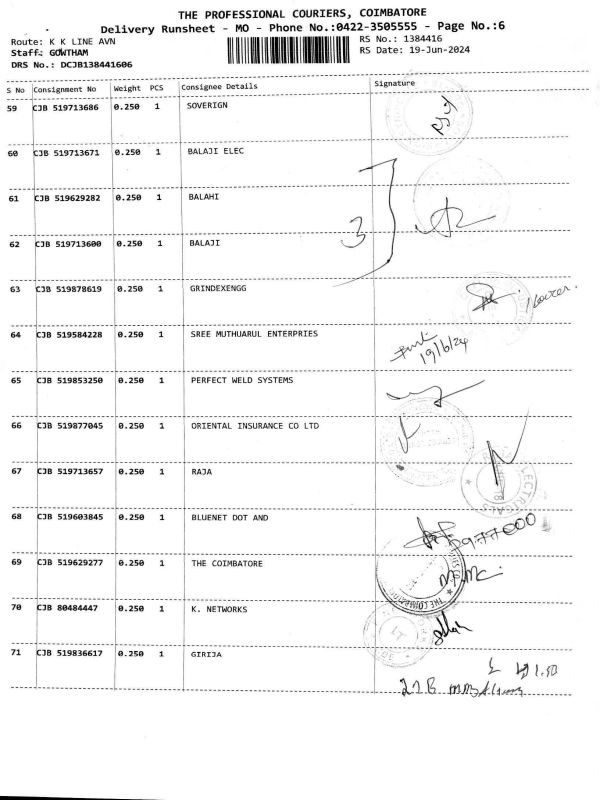 THE PROFESSIONAL COURIERS, COIMBATORE
Delivery Runsheet - MO - Phone No.:0422-3505555 - Page No.:6
Route: K K LINE AVN
RS No.: 1384416
Staff: GOWTHAM
RS Date: 19-Jun-2024
DRS No.: DCJB138441606
S No Consignment No Weight PCS Consignee Details Signature
59 CJB 519713686 0.250 1 SOVERIGN
60 CJB 519713671 0.250 1 BALAJI ELEC
61 CJB 519629282 0.250 1 BALAHI
3
62 CJB 519713600 0.250 1 BALAJI
63 CJB 519878619 0.250 1 GRINDEXENGG
64 CJB 519584228 0.250 1 SREE MUTHUARUL ENTERPRIES
19/6/24
65 CJB 519853250 0.250 1 PERFECT WELD SYSTEMS
66 CJB 519877045 0.250 1 ORIENTAL INSURANCE CO LTD
67 CJB 519713657 0.250 1 RAJA
ELECTRICALS
68 CJB 519603845 0.250 1 BLUENET DOT AND
69 CJB 519629277 0.250 1 THE COIMBATORE
70 CJB 80484447 0.250 1 K. NETWORKS
71 CJB 519836617 0.250 1 GIRIJA